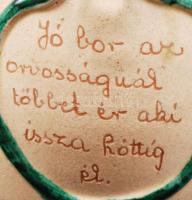 Jó bor az
orvosságnál
többet ér aki
issza hóttig
él.